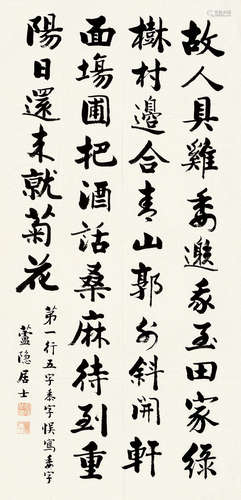 故人具雞委邀我至田家綠
樹村邊合青山郭外斜開軒
面塲圃把酒話桑麻待到重
陽日還来就菊花
第一行五字黍字悮寫委字
蘆隐居士